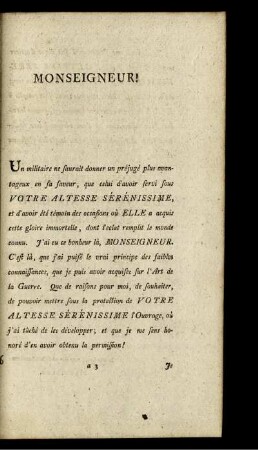 MONSEIGNEUR!
Un militaire ne saurait donner un préjugé plus avan-
tageux en sa faveur, que celui d'avoir servi sous
VOTRE ALTESSE SÉRÉNISSIME,
et d'avoir été témoin des occasions où ELLE a acquis
cette gloire immortelle, dont l'eclat remplit le monde
connu. J'ai eu ce bonheur là, MONSEIGNEUR.
C'est là, que j'ai puisé le vrai principe des faibles
connaissances, que je puis avoir acquises sur l'Art de
la Guerre. Que de raisons pour moi, de souhaiter,
de pouvoir mettre sous la protection de VOTRE
ALTESSE SÉRÉNISSIME l'Ouvrage, où
j'ai tâché de les développer; et que je me sens ho-
noré d'en avoir obtenu la permission!
a 3 Je